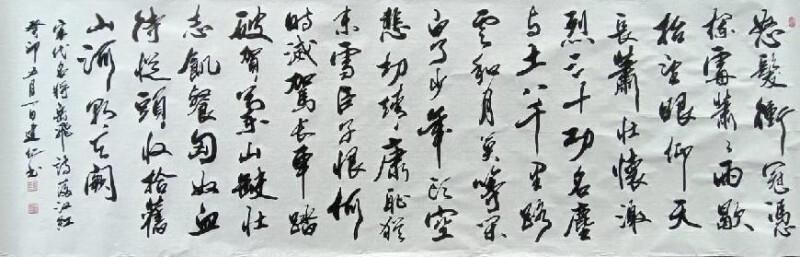 怒髮衝冠憑
欄處蕭々雨歇
抬望眼仰天
長蕭壯懷激
烈三十功名塵
与土八千里路
雲和月莫等閑
白了少年頭空
悲切靖康恥猶
未雪臣子恨何
時滅駕長車踏
破賀蘭山缺壯
志飢餐匈奴血
待從頭收拾舊
山河朝天闕
宋代名將岳飛詩滿江紅
癸卯五月一日建仁書